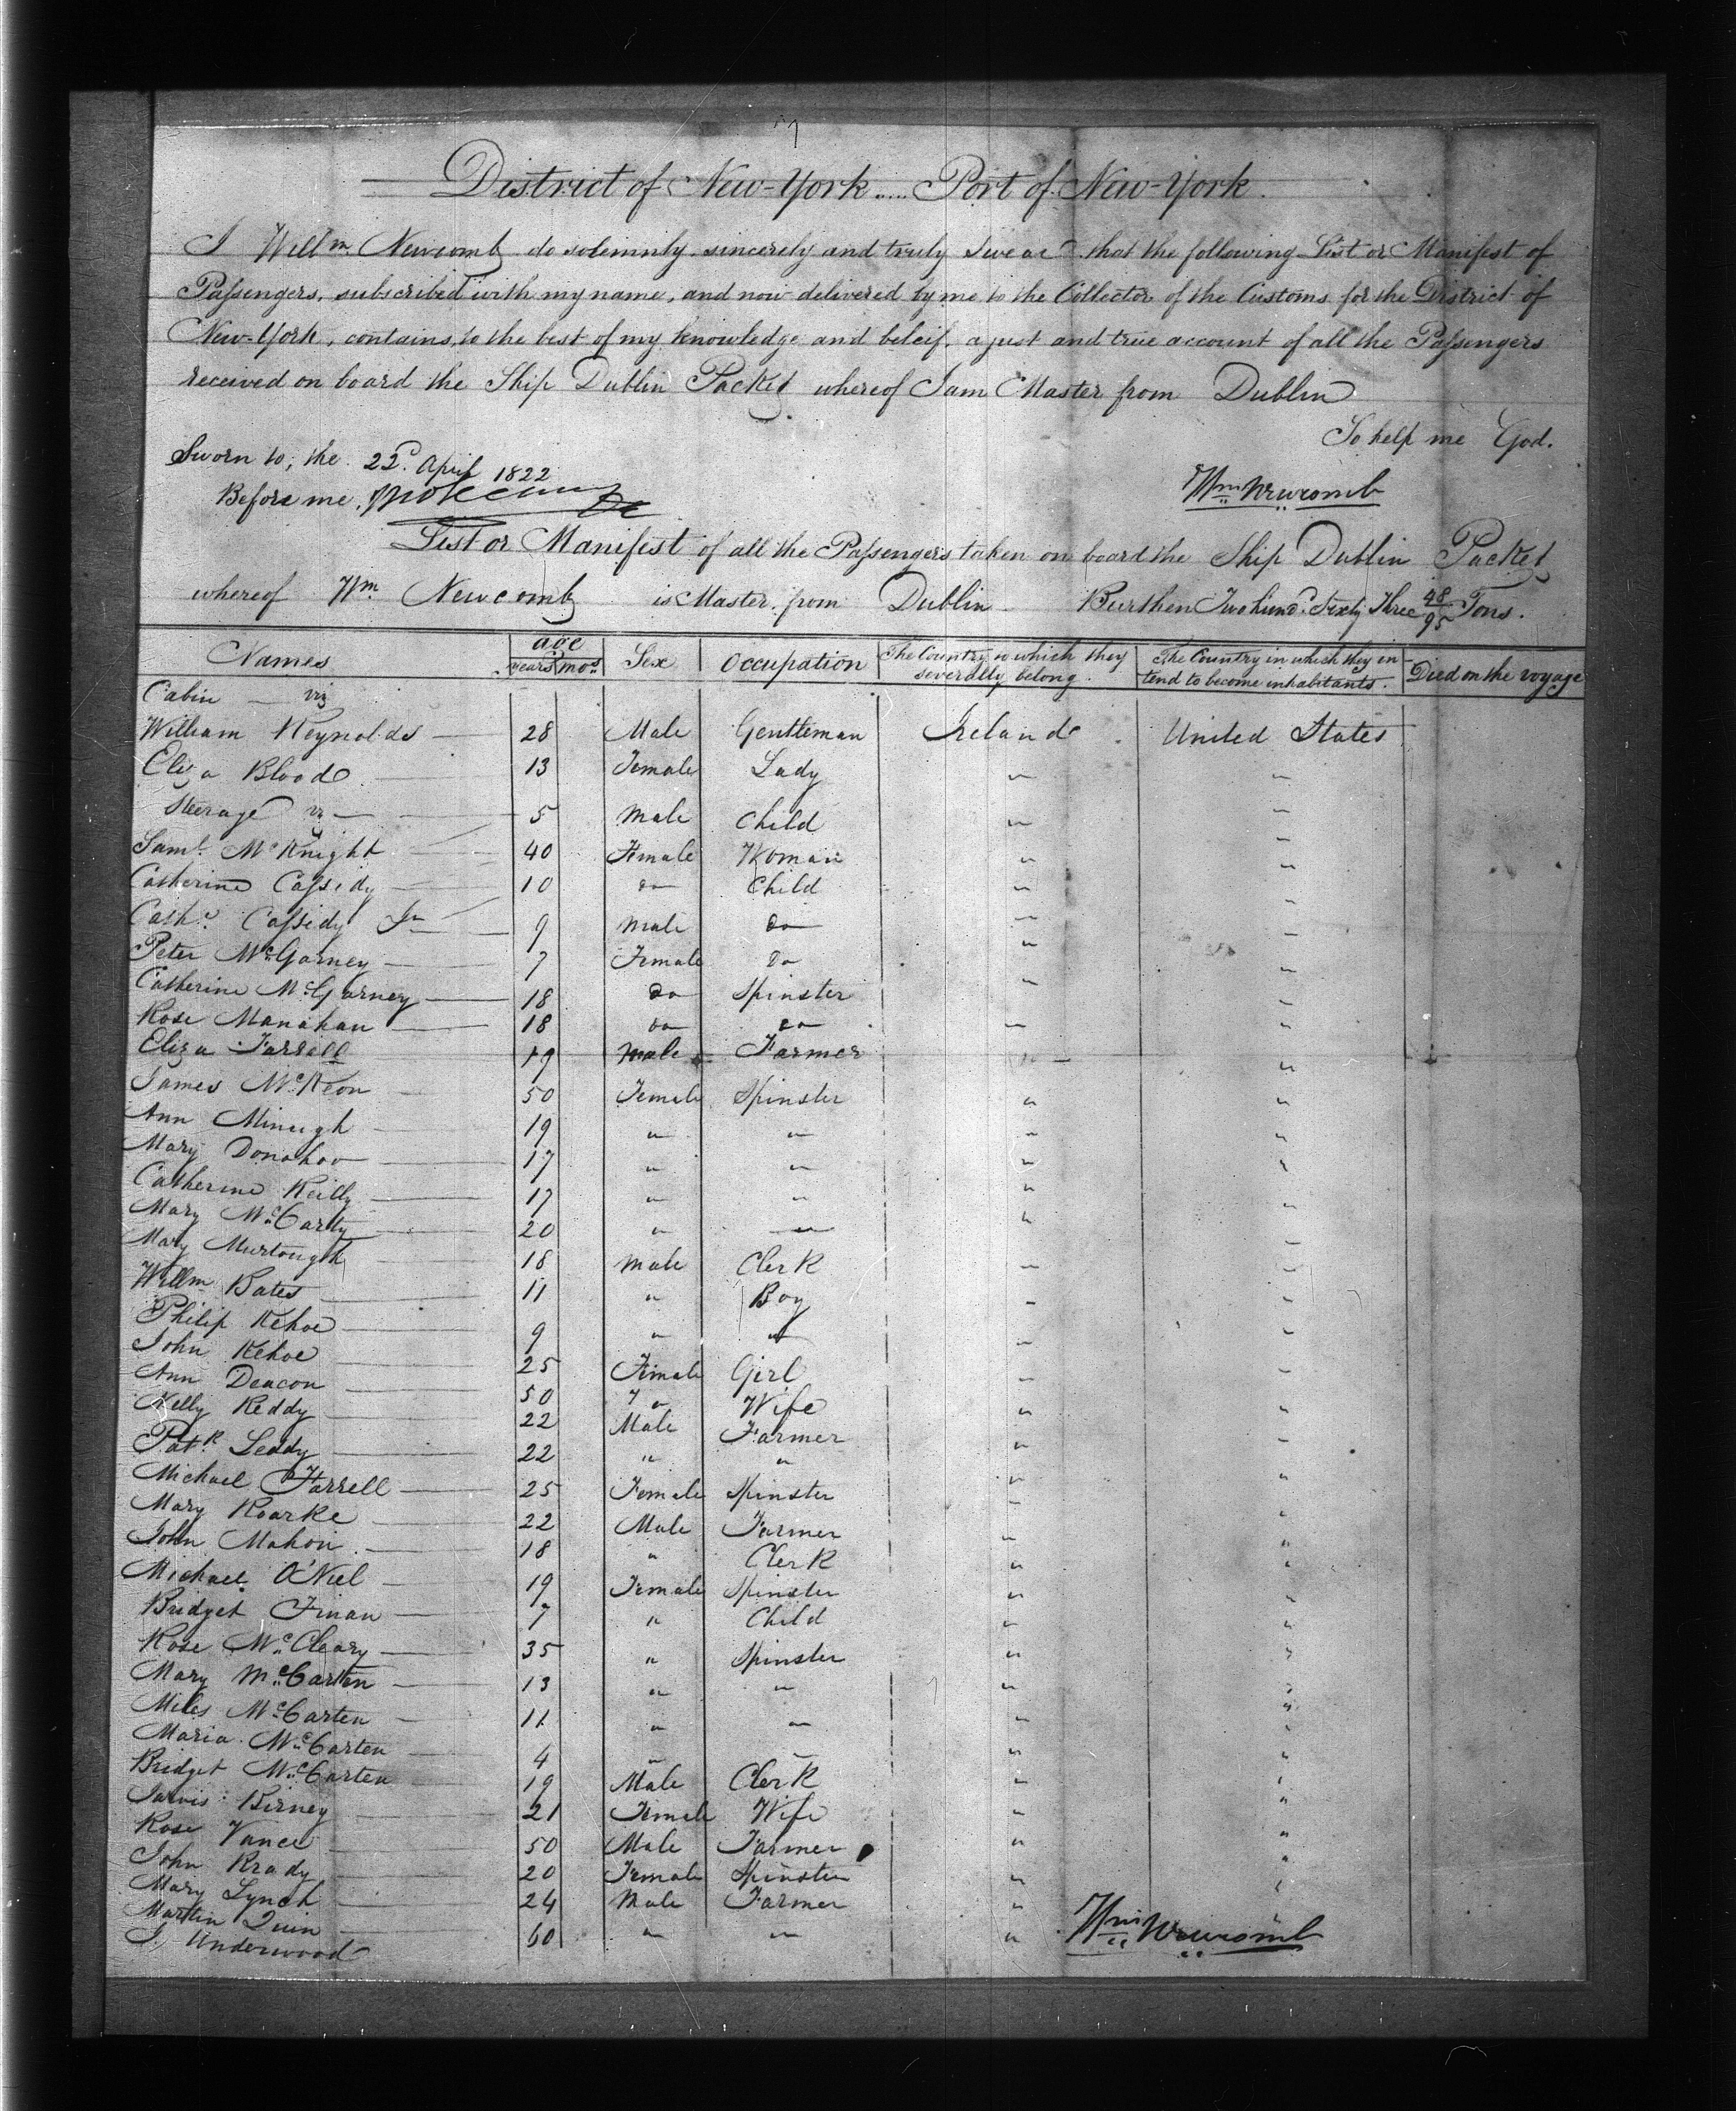 District of New-York.... Port of New-York.
I Willm. Newcomb do solemnly, sincerely and truly Swear that the following List or Manifest of
Passengers, subscribed with my name, and now delivered by me to the Collector of the Customs for the District of
New-York, contains, to the best of my knowledge and beleif, a just and true account of all the Passengers
received on board the Ship Dublin Packet whereof I am Master from Dublin
So help me God.
Sworn to, the 22d. April 1822
Before me,
Wm Newcomb
List or Manifest of all the Passengers taken on board the Ship Dublin Packet
whereof Wm. Newcomb is Master, from Dublin Burthen Two hund. Sixty Three 48/95 Tons.
Names age years mos. Sex Occupation The Country to which they severally belong. The Country in which they intend to become inhabitants. Died on the voyage
Cabin viz
William Reynolds 28 Male Gentleman Ireland United States
Eliza Blood 13 Female Lady " "
Steerage viz 5 Male Child " "
Saml. McKnight 40 Female Woman " "
Catherine Cassidy 10 do Child " "
Cathe. Cassidy Jn 9 Male do " "
Peter McGarney 7 Female do " "
Catherine McGarney 18 do Spinster " "
Rose Manahan 18 do do " "
Eliza Farrell 19 Male Farmer " "
James McKeon 50 Female Spinster " "
Ann Minugh 19 " " " "
Mary Donohoo 17 " " " "
Catherine Reilly 17 " " " "
Mary McCarty 20 " " " "
Mary Murtough 18 Male Clerk " "
Willm Bates 11 " Boy " "
Philip Kehoe 9 " " " "
John Kehoe 25 Female Girl " "
Ann Deacon 50 " Wife " "
Nelly Reddy 22 Male Farmer " "
Patk. Leddy 22 " " " "
Michael Farrell 25 Female Spinster " "
Mary Roarke 22 Male Farmer " "
John Mahon 18 " Clerk " "
Michael O'Niel 19 Female Spinster " "
Bridget Finan 7 " Child " "
Rose McCleary 35 " Spinster " "
Mary McCarten 13 " " " "
Miles McCarten 11 " " " "
Maria McCarten 4 " " " "
Bridget McCarten 19 Male Clerk " "
Jarvis Birney 21 Female Wife " "
Rose Vance 50 Male Farmer " "
John Brady 20 Female Spinster " "
Mary Lynch 24 Male Farmer " "
Martin Quin 60 " " "
J. Underwood
Wm Newcomb